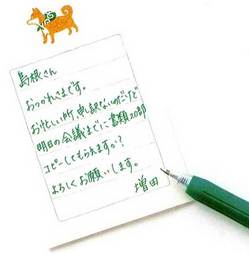 島根さん
おつかれさまです。
お忙しい所、申し訳ないのだけど
明日の会議までに書類20部
コピーしてもらえますか?
よろしくお願いします。
増田